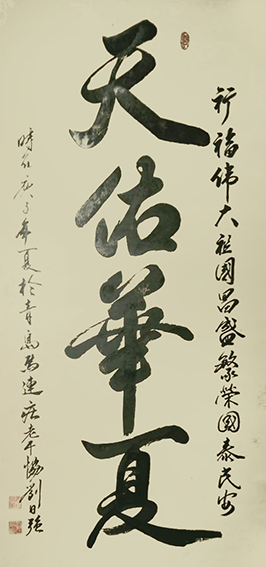 祈福伟大祖國昌盛繁榮國泰民安
天佑華夏
時在庚子年夏於青島馬連莊老干協劉日强